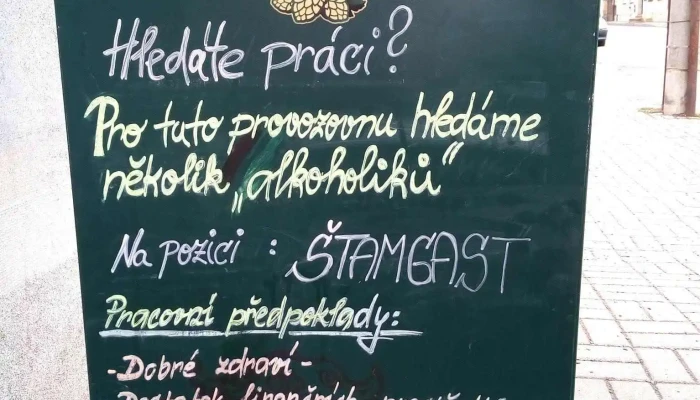 Hledáte práci?
Pro tuto provozovnu hledáme
několik „alkoholiků“
Na pozici : ŠTAMGAST
Pracovní předpoklady:
-Dobré zdraví-